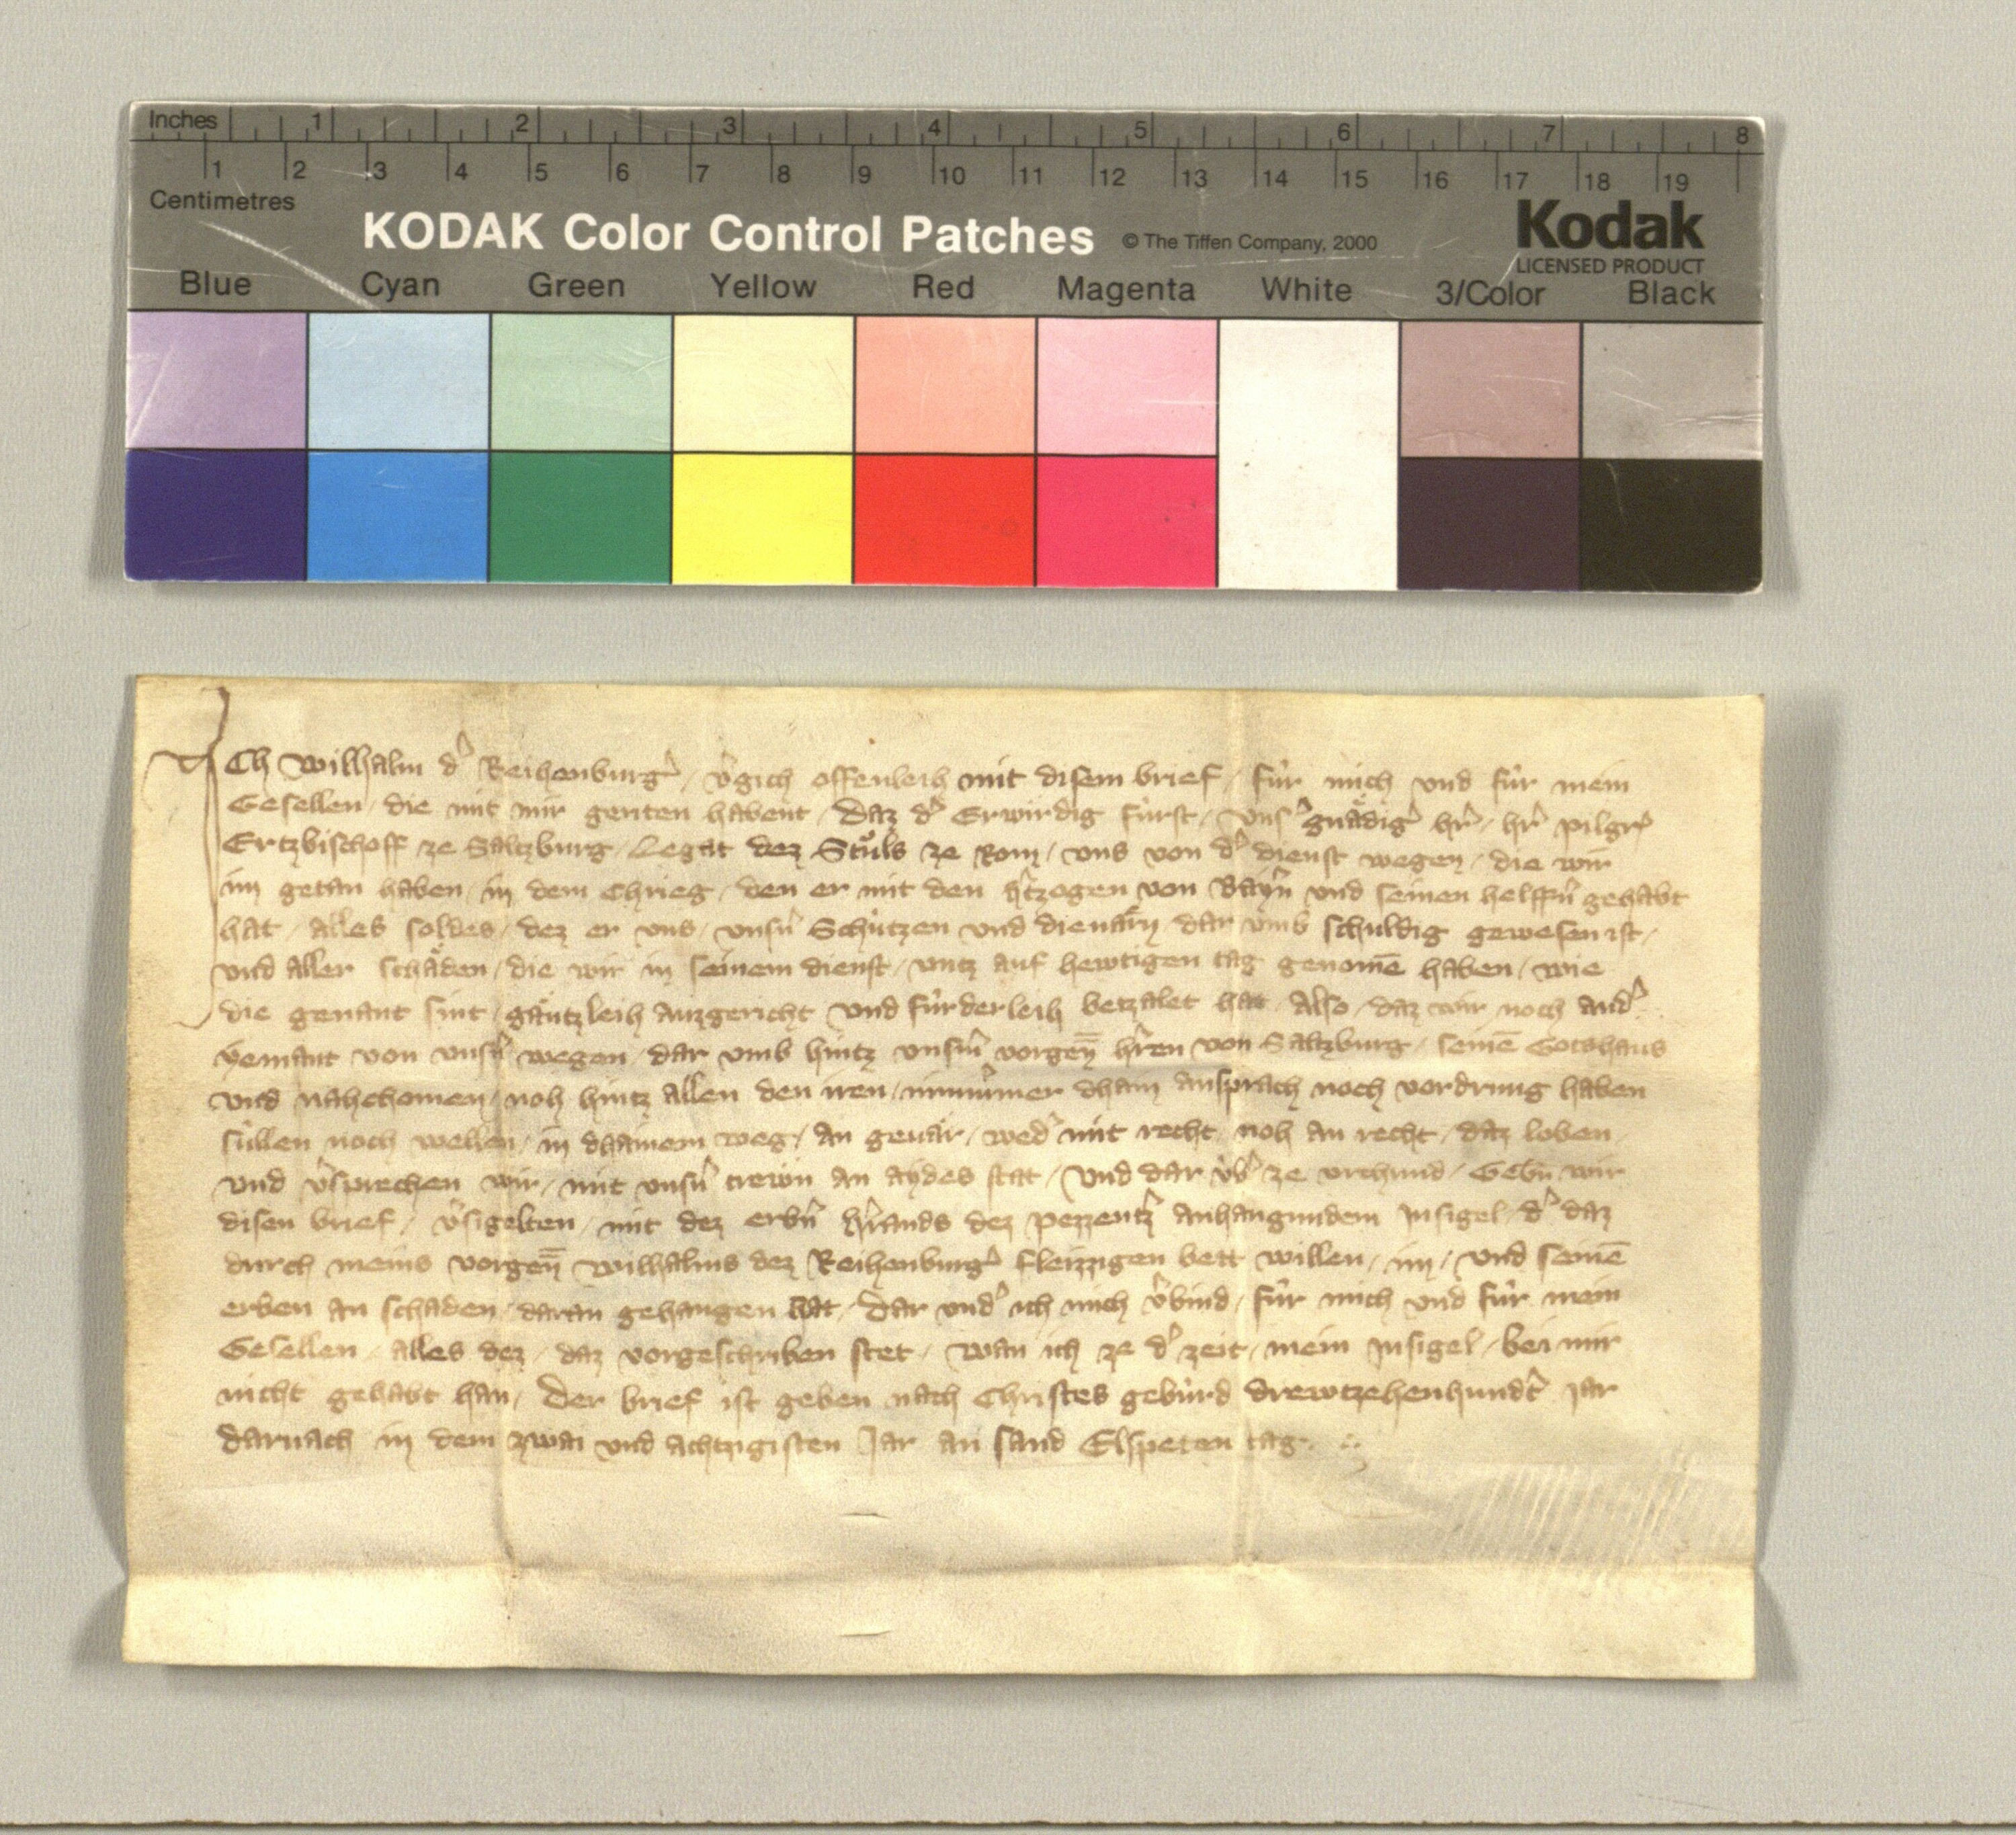 Inches 1 2 3 4 5 6 7 8
1 2 3 4 5 6 7 8 9 10 11 12 13 14 15 16 17 18 19
Centimetres
KODAK Color Control Patches © The Tiffen Company, 2000 Kodak
LICENSED PRODUCT
Blue Cyan Green Yellow Red Magenta White 3/Color Black
ICh Wilhalm d' Reihenburg' / v'gich offenleih mit disem brief / fúr mich und fúr mein
Gesellen / die mit mir geriten habent / Daz d' Erwirdig fúrst / Vns' gnädig' h'r / h'r pilgr'
Ertzbischoff ze Saltzburg / Legat dez Stůls ze Rom / vns von d' dienst wegen / die wir
im getan haben / in dem Chrieg / den er mit den h'tzogen von Bayr'n und seinen helff'n gehabt
hat / alles soldes / dez er vns / vns'n Schützen und dienärn / dar vmb schuldig gewesen ist /
vnd aller schäden / die wir in seinem dienst / vntz auf hewtigen tag genomē haben / wie
die genant sint / gäntzleih auzgericht vnd fúrderleih betzalet hat / Also / daz wir noch and'
yemant von vns'n wegen / dar vmb hintz vns'm vorgen̄ h'ren von Saltzburg / seinē Gotshaus
vnd nahchomen / noh hintz allen den iren / nimmer dhain ansprach noch vordrung haben
súllen noch wellen / in dhainem weg / an geuär / wed' mit recht / noh an recht / daz loben
vnd v'sprechen wir / mit vns'n trewn an aydes stat / Vnd dar v'b' ze vrchund / Geb'n wir
disen brief / v'sigelten / mit dez erb'n h'rands dez pezzentz' anhangundem Insigel / d' daz
durch meins vorgen̄ Wilhalms dez Reihenburg' fleizzigen bett willen / im / vnd seinē
erben an schaden / daran gehangen hat / Dar vnd' ich mich v'bind / fúr mich vnd fúr mein
Gesellen / alles dez / daz vorgeschriben stet / wan ich ze d' zeit / mein Insigel / bei mir
nicht gehabt han / Der brief ist geben nach Christes gebúrd drewtzehenhund't Jar
darnach in dem zwai vnd achtzigisten Jar an sand Elspeten tag